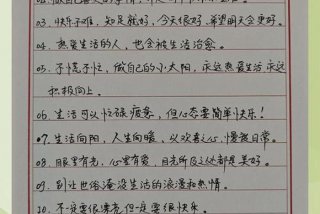 03. 快乐不难，知足就好，今天很好，希望明天会更好。
04. 热爱生活的人，也会被生活治愈。
05. 不慌不忙，做自己的小太阳，永远热爱生活永远
积极向上。
06. 生活可以忙碌疲惫，但心态要简单快乐！
07. 生活向阳，人生向暖，以欢喜之心，慢度日常。
08. 眼里有光，心里有爱，目光所及之处都是美好。
09. 别让世俗淹没生活的浪漫和热情。
10. 不一定要很漂亮但一定要很快乐。